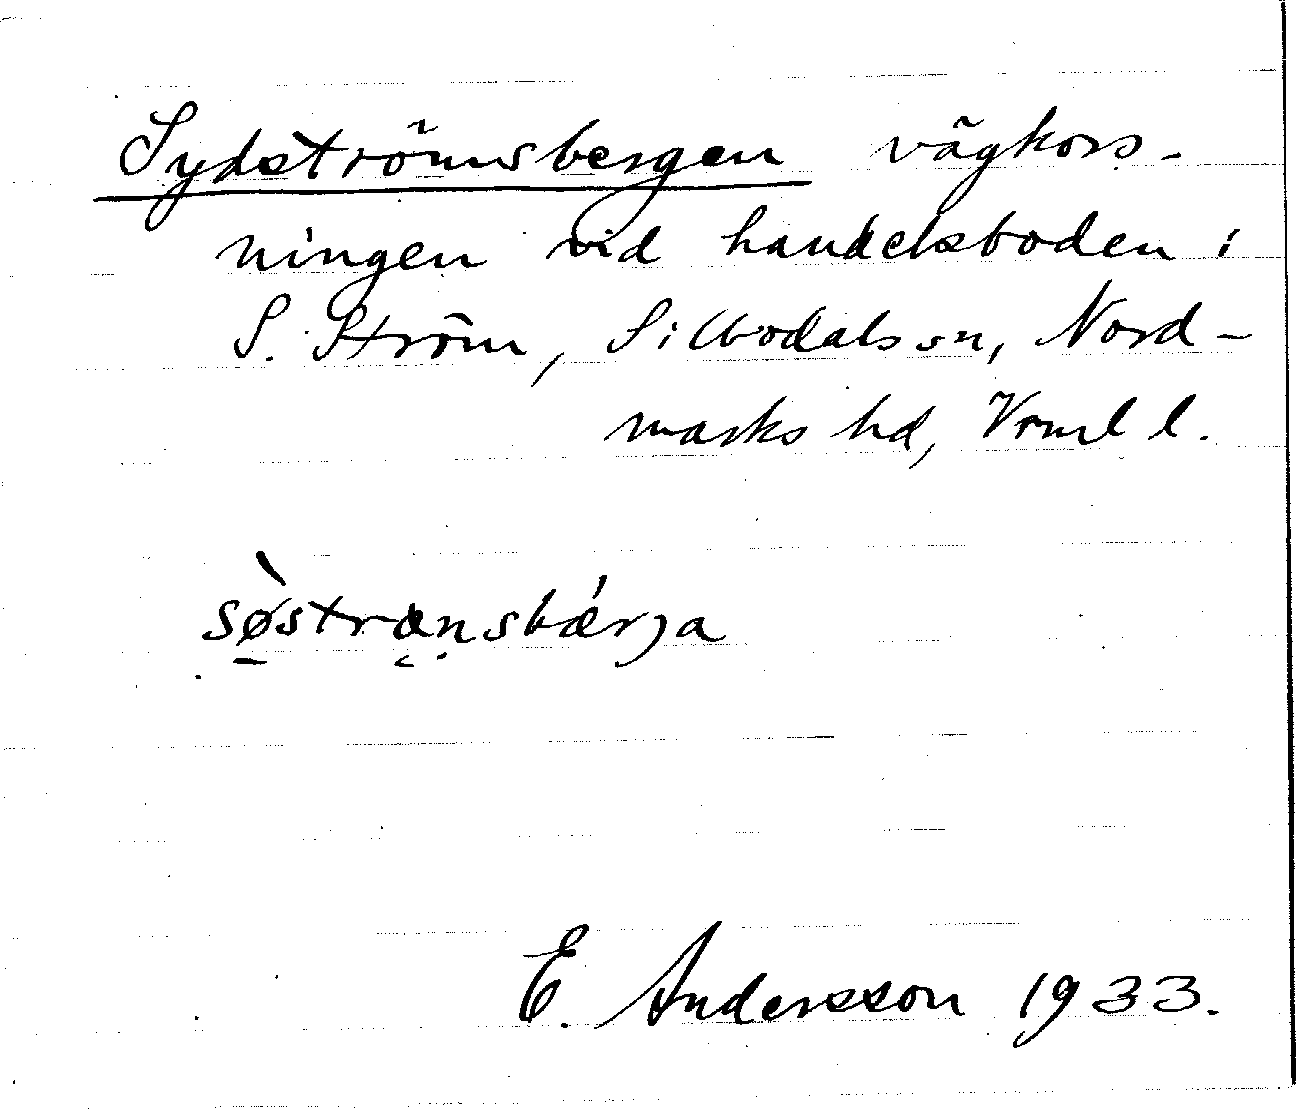 Sydströmsbergen vägkors-
ningen vid handelsboden i
S. Ström, Sillbodals sn, Nord-
marks hd, Vrml l.
sø̀strænsbǽrja
E. Andersson 1933.